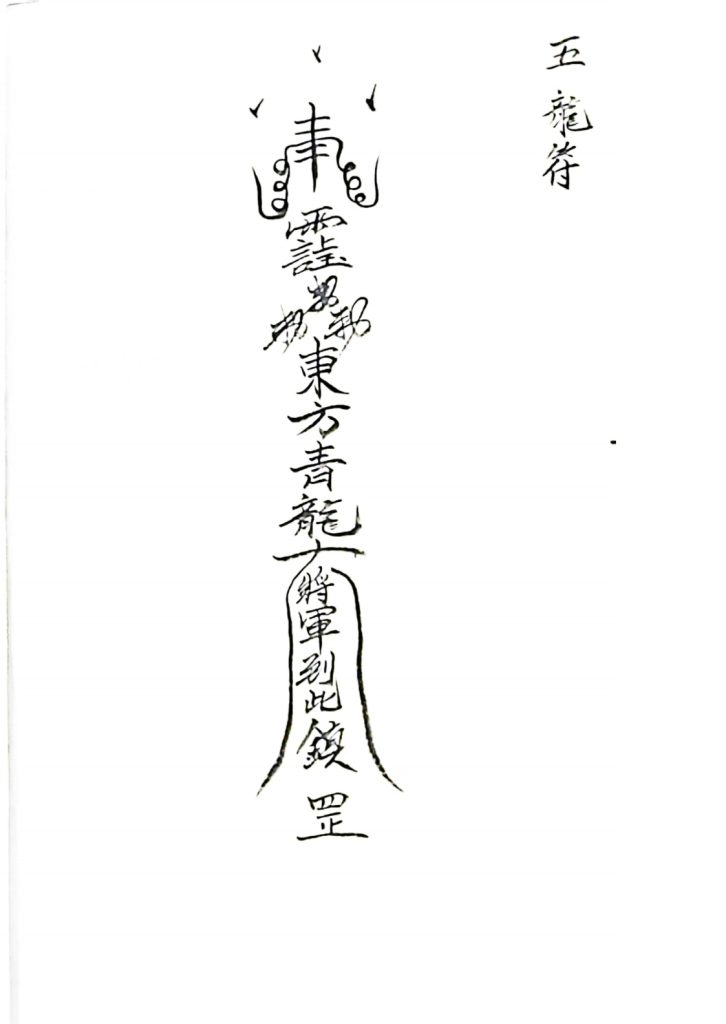 五龍符
奉東方青龍大將軍到此鎮罡